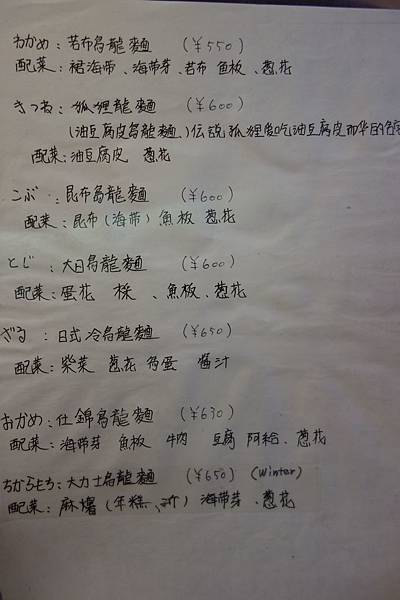 わかめ：若布烏龍麵 （￥550）
配菜：裙海帯、海帯芽、若布 魚板、葱花
きつね：狐狸龍麵 （￥600）
（油豆腐皮烏龍麵）伝説狐狸愛吃油豆腐皮而
配菜：油豆腐皮 葱花
こぶ：昆布烏龍麵 （￥600）
配菜：昆布（海帯）魚板 葱花
とじ：大日烏龍麵 （￥600）
配菜：蛋花 、魚板、葱花
ざる：日式冷烏龍麵 （￥650）
配菜：紫菜 葱花 鸟蛋 醬汁
おかめ：仕錦烏龍麵 （￥630）
配菜：海帯芽 魚板 牛肉 豆腐 阿給、葱花
ちからもち：大力士烏龍麵 （￥650）（Winter）
配菜：麻糬（年糕、） 海帯芽、葱花